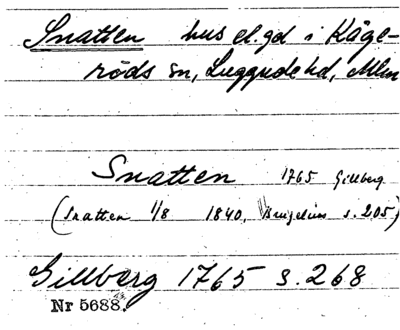 Snatten hus el. gd i Kåge-
röds sn, Luggude hd, Mlm
Snatten 1765 Gillberg
(Snatten 1/8 1840, Brugelius s. 205)
Gillberg 1765 s. 268
Nr 5688.